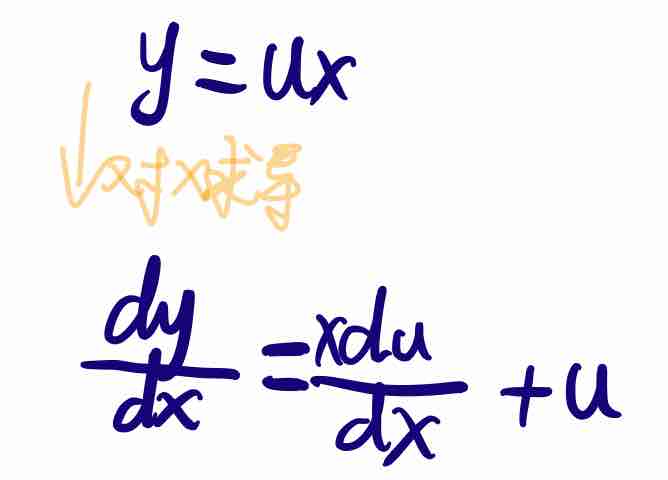 y = ux
↓对x求导
dy/dx = xdu/dx + u